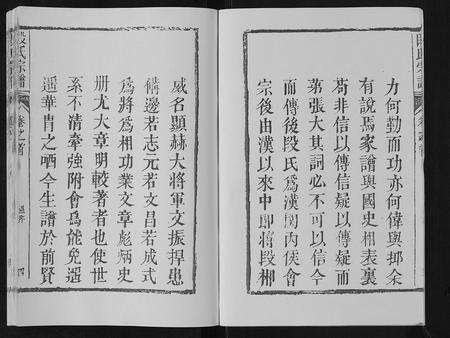 力何勤而功亦何偉與挪余
有說焉家譜與國史相表裏
苟非信以傳信疑以傳疑而
第張大其詞必不可以信今
而傳後段氏爲漢関内侯會
宗後由漢以來中即將段郴
威名顯赫大將軍文振捍患
備邊若志元若文昌若成式
爲將爲相功業文章彪炳史
册尤大章明較著者也使世
系不清牽強附會烏能免遥
遥華胄之哂今生譜於前賢
段氏宗譜
卷之首
四